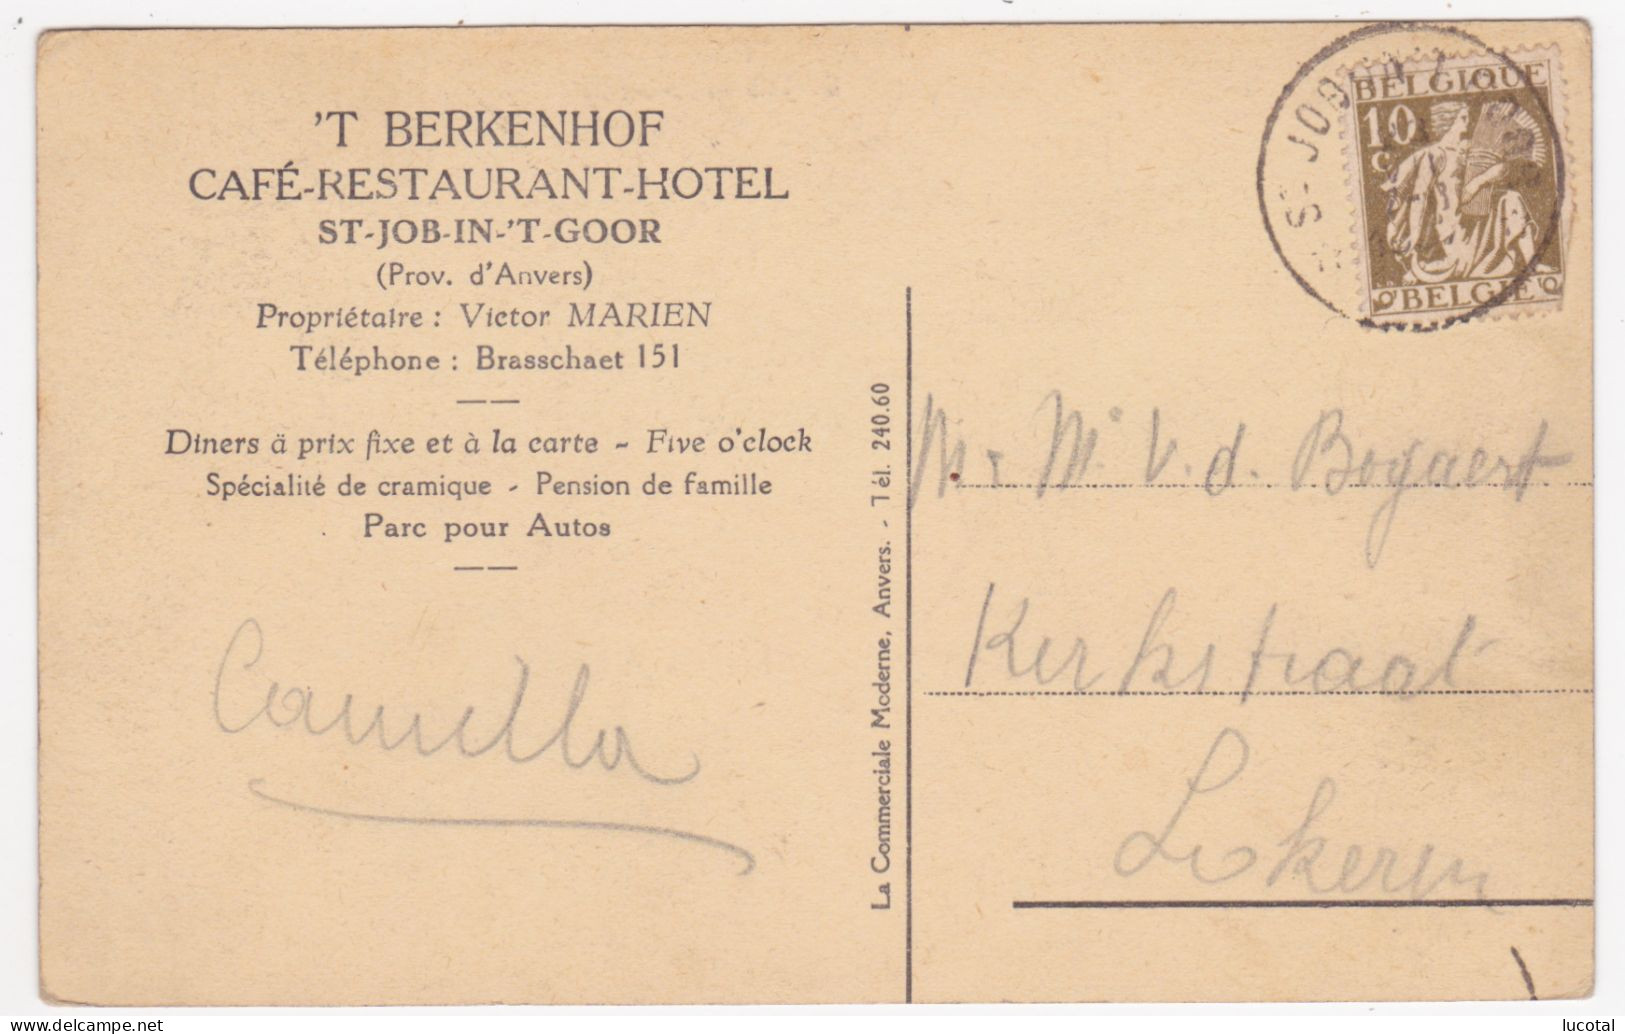 'T BERKENHOF
CAFÉ-RESTAURANT-HOTEL
ST-JOB-IN-'T-GOOR
(Prov. d'Anvers)
Propriétaire : Victor MARIEN
Téléphone : Brasschaet 151
Diners à prix fixe et à la carte - Five o'clock
Spécialité de cramique - Pension de famille
Parc pour Autos
Camilla
La Commerciale Moderne, Anvers. - Tél. 240.60
BELGIQUE
10
C
BELGIË
ST-JOB-IN
Mr. V. d. Bogaert
Kerkstraat
Lokeren
delcampe.net
lucotal